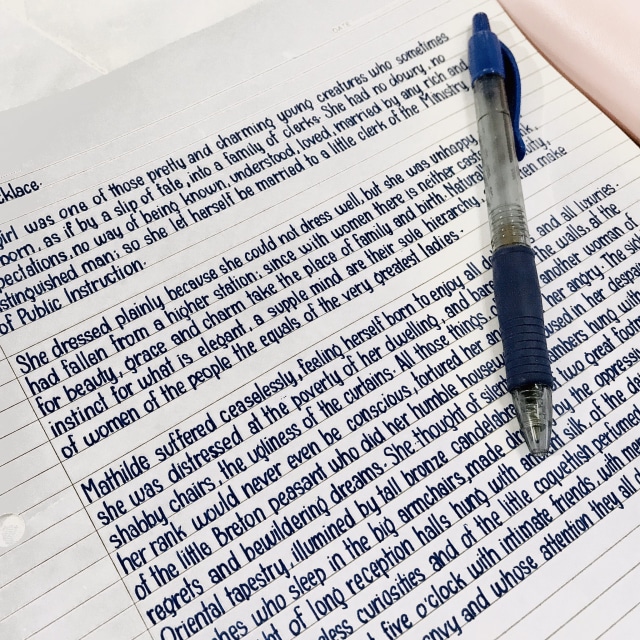 cklace.
girl was one of those pretty and charming young creatures who sometimes
born, as if by a slip of fate, into a family of clerks. She had no dowry, no
pectations, no way of being known, understood, loved, married by any rich and
stinguished man; so she let herself be married to a little clerk of the Ministry
of Public Instruction.
She dressed plainly because she could not dress well, but she was unhappy
had fallen from a higher station; since with women there is neither caste
for beauty, grace and charm take the place of family and birth. Natural make
instinct for what is elegant, a supple mind are their sole hierarchy,
of women of the people the equals of the very greatest ladies.
Mathilde suffered ceaselessly, feeling herself born to enjoy all and all luxuries.
she was distressed at the poverty of her dwelling, and walls, at the
shabby chairs, the ugliness of the curtains. All those things, another woman of
her rank would never even be conscious, tortured her angry. The
of the little Breton peasant who did her humble house in her
regrets and bewildering dreams. She thought of hung with
Oriental tapestry, illumined by tall bronze candelabra, two great
who sleep in the big armchairs, made by the
of long reception halls hung with silk of the
curiosities and of the little coquettish
five o'clock with intimate friends, with
and whose attention they all